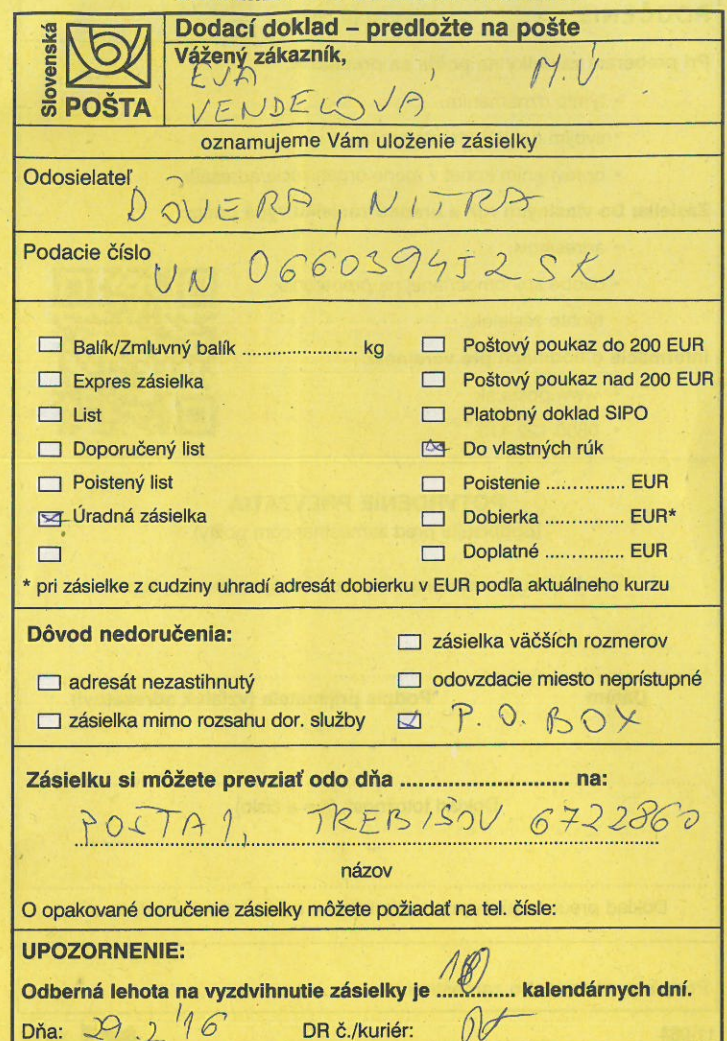 Slovenská
POŠTA
Dodací doklad – predložte na pošte
Vážený zákazník,
EVA M.Ú
VENDELOVA
oznamujeme Vám uloženie zásielky
Odosielateľ
DÔVERA, NITRA
Podacie číslo
UN 066039452 SK
Balík/Zmluvný balík ...................... kg
Expres zásielka
List
Doporučený list
Poistený list
Úradná zásielka
Poštový poukaz do 200 EUR
Poštový poukaz nad 200 EUR
Platobný doklad SIPO
Do vlastných rúk
Poistenie ............... EUR
Dobierka ............... EUR*
Doplatné ............... EUR
* pri zásielke z cudziny uhradí adresát dobierku v EUR podľa aktuálneho kurzu
Dôvod nedoručenia:
zásielka väčších rozmerov
adresát nezastihnutý
odovzdacie miesto neprístupné
zásielka mimo rozsahu dor. služby
P. O. BOX
Zásielku si môžete prevziať odo dňa ........................... na:
POŠTA 1, TREBIŠOV 6722860
názov
O opakované doručenie zásielky môžete požiadať na tel. čísle:
UPOZORNENIE:
Odberná lehota na vyzdvihnutie zásielky je 18 kalendárnych dní.
Dňa: 29.2'16 DR č./kuriér: